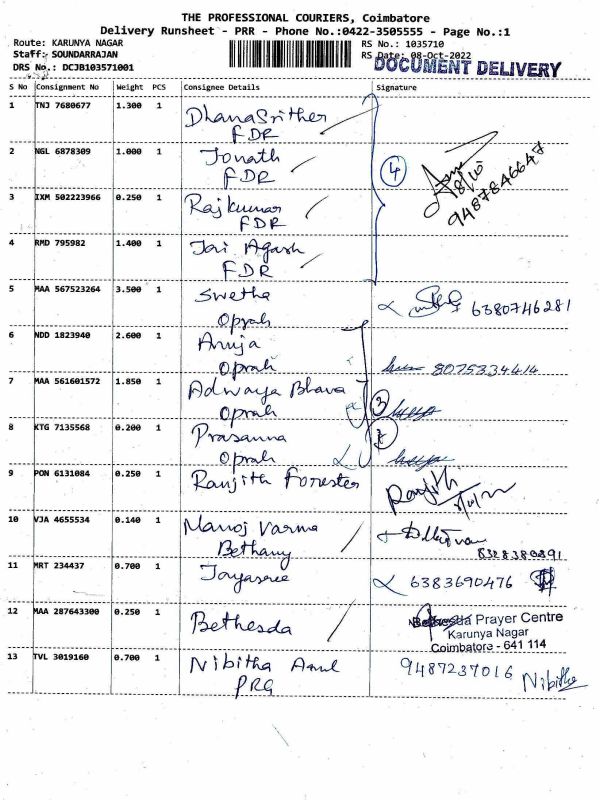 THE PROFESSIONAL COURIERS, Coimbatore
Delivery Runsheet - PRR - Phone No.:0422-3505555 - Page No.:1
Route: KARUNYA NAGAR
RS No.: 1035710
Staff: SOUNDARRAJAN
RS Date: 08-Oct-2022
DRS No.: DCJB103571001
DOCUMENT DELIVERY
S No Consignment No Weight PCS Consignee Details Signature
1 TNJ 7680677 1.300 1 DhanaSrither
FDR
2 NGL 6878309 1.000 1 Jonath
FDR
4
18/10
9487846647
3 IXM 502223966 0.250 1 Rajkumar
FDR
4 RMD 795982 1.400 1 Jai Agash
FDR
5 MAA 567523264 3.500 1 Swetha
Oprah
6380746281
6 NDD 1823940 2.600 1 Anuja
Oprah
8075334414
7 MAA 561601572 1.850 1 Adwaya Bhava
Oprah
3
8 KTG 7135568 0.200 1 Prasanna
Oprah
9 PON 6131084 0.250 1 Ranjith Forester
Ranjith
10 VJA 4655534 0.140 1 Manoj Varma
Bethany
8328380891
11 MRT 234437 0.700 1 Jayasree
6383690476
12 MAA 287643300 0.250 1 Bethesda
Bethesda Prayer Centre
Karunya Nagar
Coimbatore - 641 114
13 TVL 3019160 0.700 1 Nibitha Arul
PRG
9487237016 Nibitha